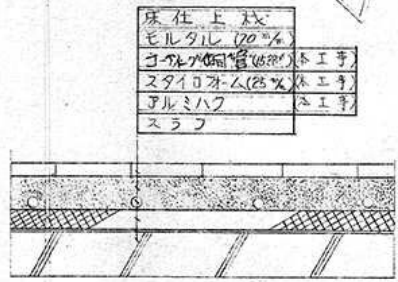 床仕上材
モルタル (70 m/m)
コーティング銅管(15.88φ) (本工事)
スタイロフォーム(25 m/m) (本工事)
アルミハク (本工事)
スラブ